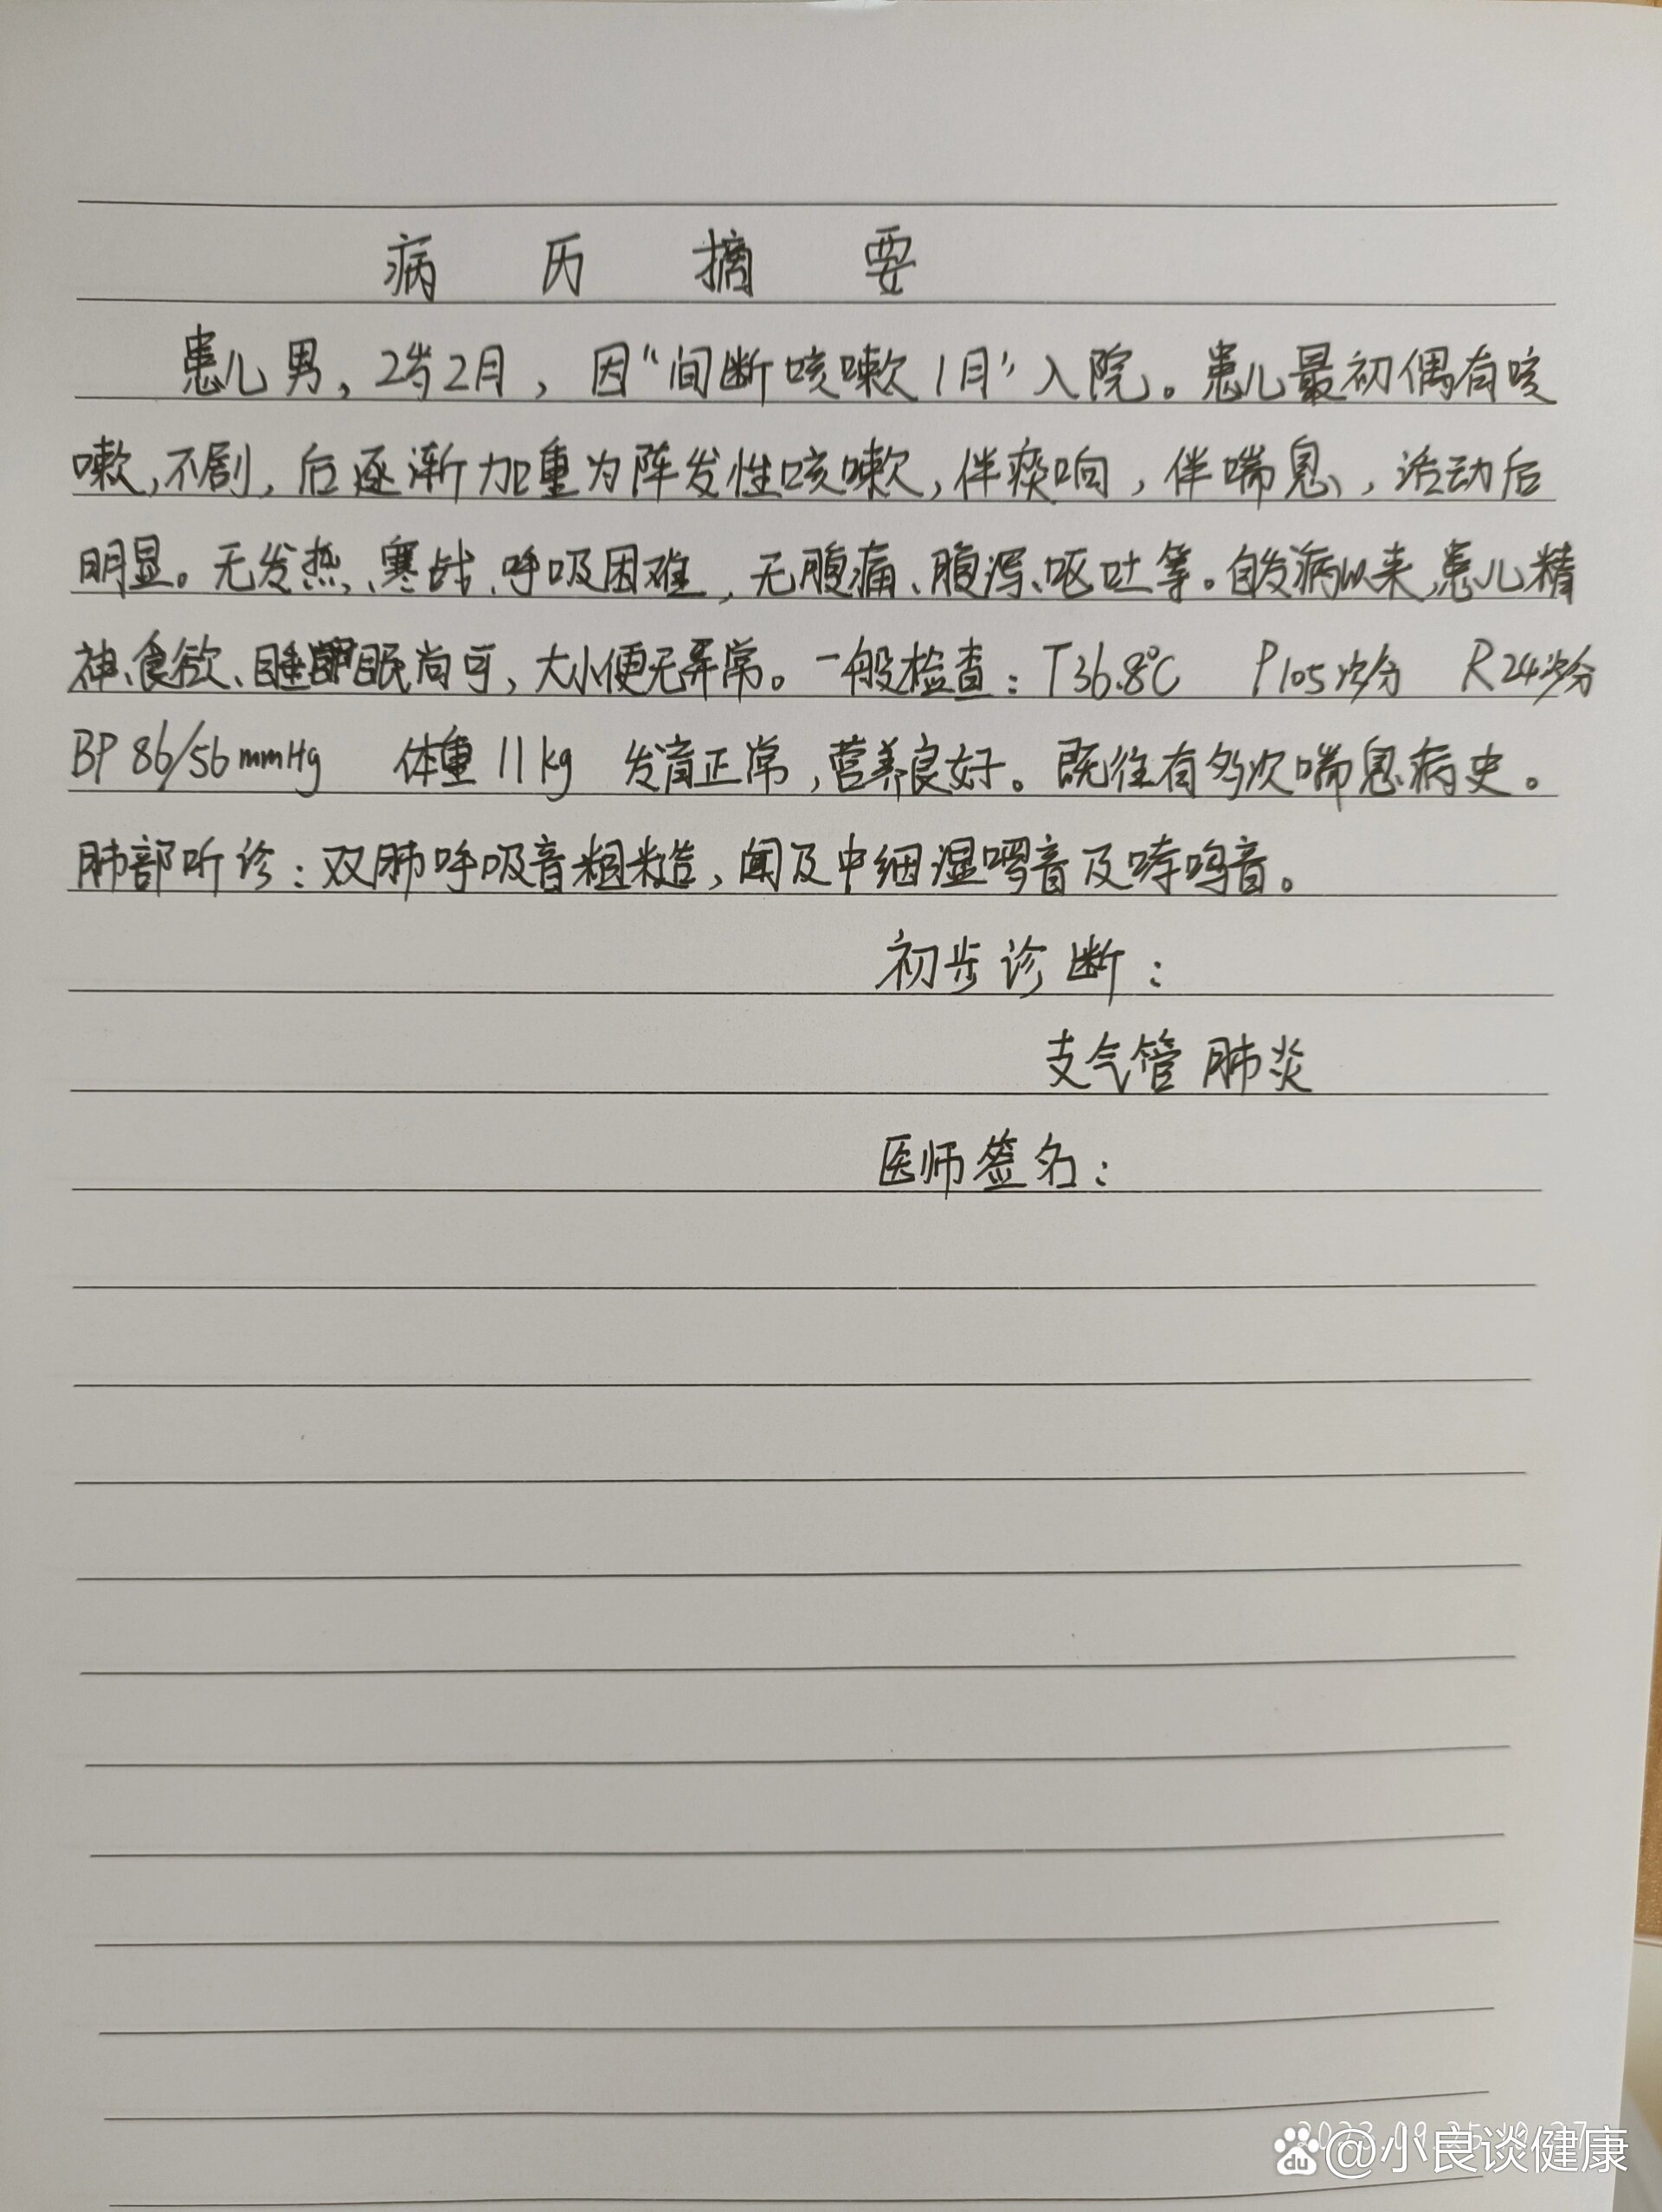 病 历 摘 要
患儿男，2岁2月，因“间断咳嗽1月”入院。患儿最初偶有咳
嗽，不剧，后逐渐加重为阵发性咳嗽，伴痰响，伴喘息，活动后
明显。无发热、寒战、呼吸困难，无腹痛、腹泻、呕吐等。自发病以来，患儿精
神、食欲、睡眠尚可，大小便无异常。一般检查：T36.8℃ P105次/分 R24次/分
BP 86/56mmHg 体重11kg 发育正常，营养良好。既往有多次喘息病史。
肺部听诊：双肺呼吸音粗糙，闻及中细湿啰音及哮鸣音。
初步诊断：
支气管肺炎
医师签名：
du @小良谈健康